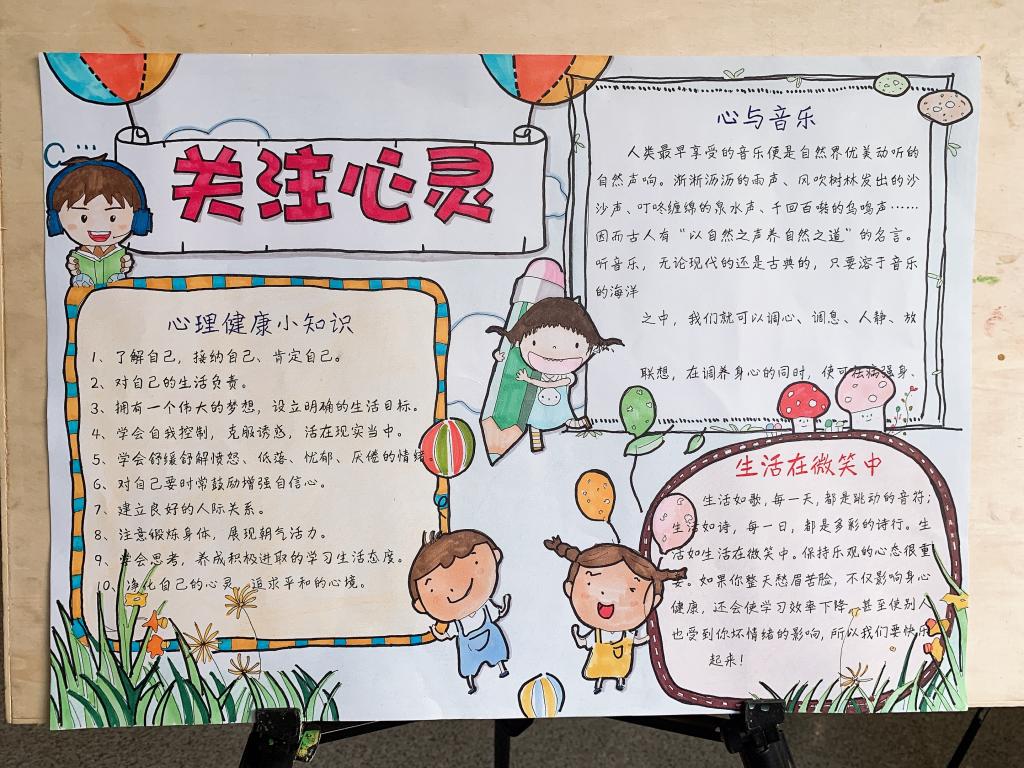 关注心灵
心理健康小知识
1、了解自己，接纳自己、肯定自己。
2、对自己的生活负责。
3、拥有一个伟大的梦想，设立明确的生活目标。
4、学会自我控制，克服诱惑，活在现实当中。
5、学会舒缓纾解愤怒、低落、忧郁、厌倦的情绪。
6、对自己要时常鼓励增强自信心。
7、建立良好的人际关系。
8、注意锻炼身体，展现朝气活力。
9、学会思考，养成积极进取的学习生活态度。
10、净化自己的心灵，追求平和的心境。
心与音乐
人类最早享受的音乐便是自然界优美动听的
自然声响。淅淅沥沥的雨声、风吹树林发出的沙
沙声、叮咚缠绵的泉水声、千回百啭的鸟鸣声……
因而古人有“以自然之声养自然之道”的名言。
听音乐，无论现代的还是古典的，只要溶于音乐
的海洋
之中，我们就可以调心、调息、人静、放
联想，在调养身心的同时，使可祛病强身、
生活在微笑中
生活如歌，每一天，都是跳动的音符；
生活如诗，每一日，都是多彩的诗行。生
活如生活在微笑中。保持乐观的心态很重
要。如果你整天愁眉苦脸，不仅影响身心
健康，还会使学习效率下降，甚至使别人
也受到你坏情绪的影响，所以我们要快乐
起来！